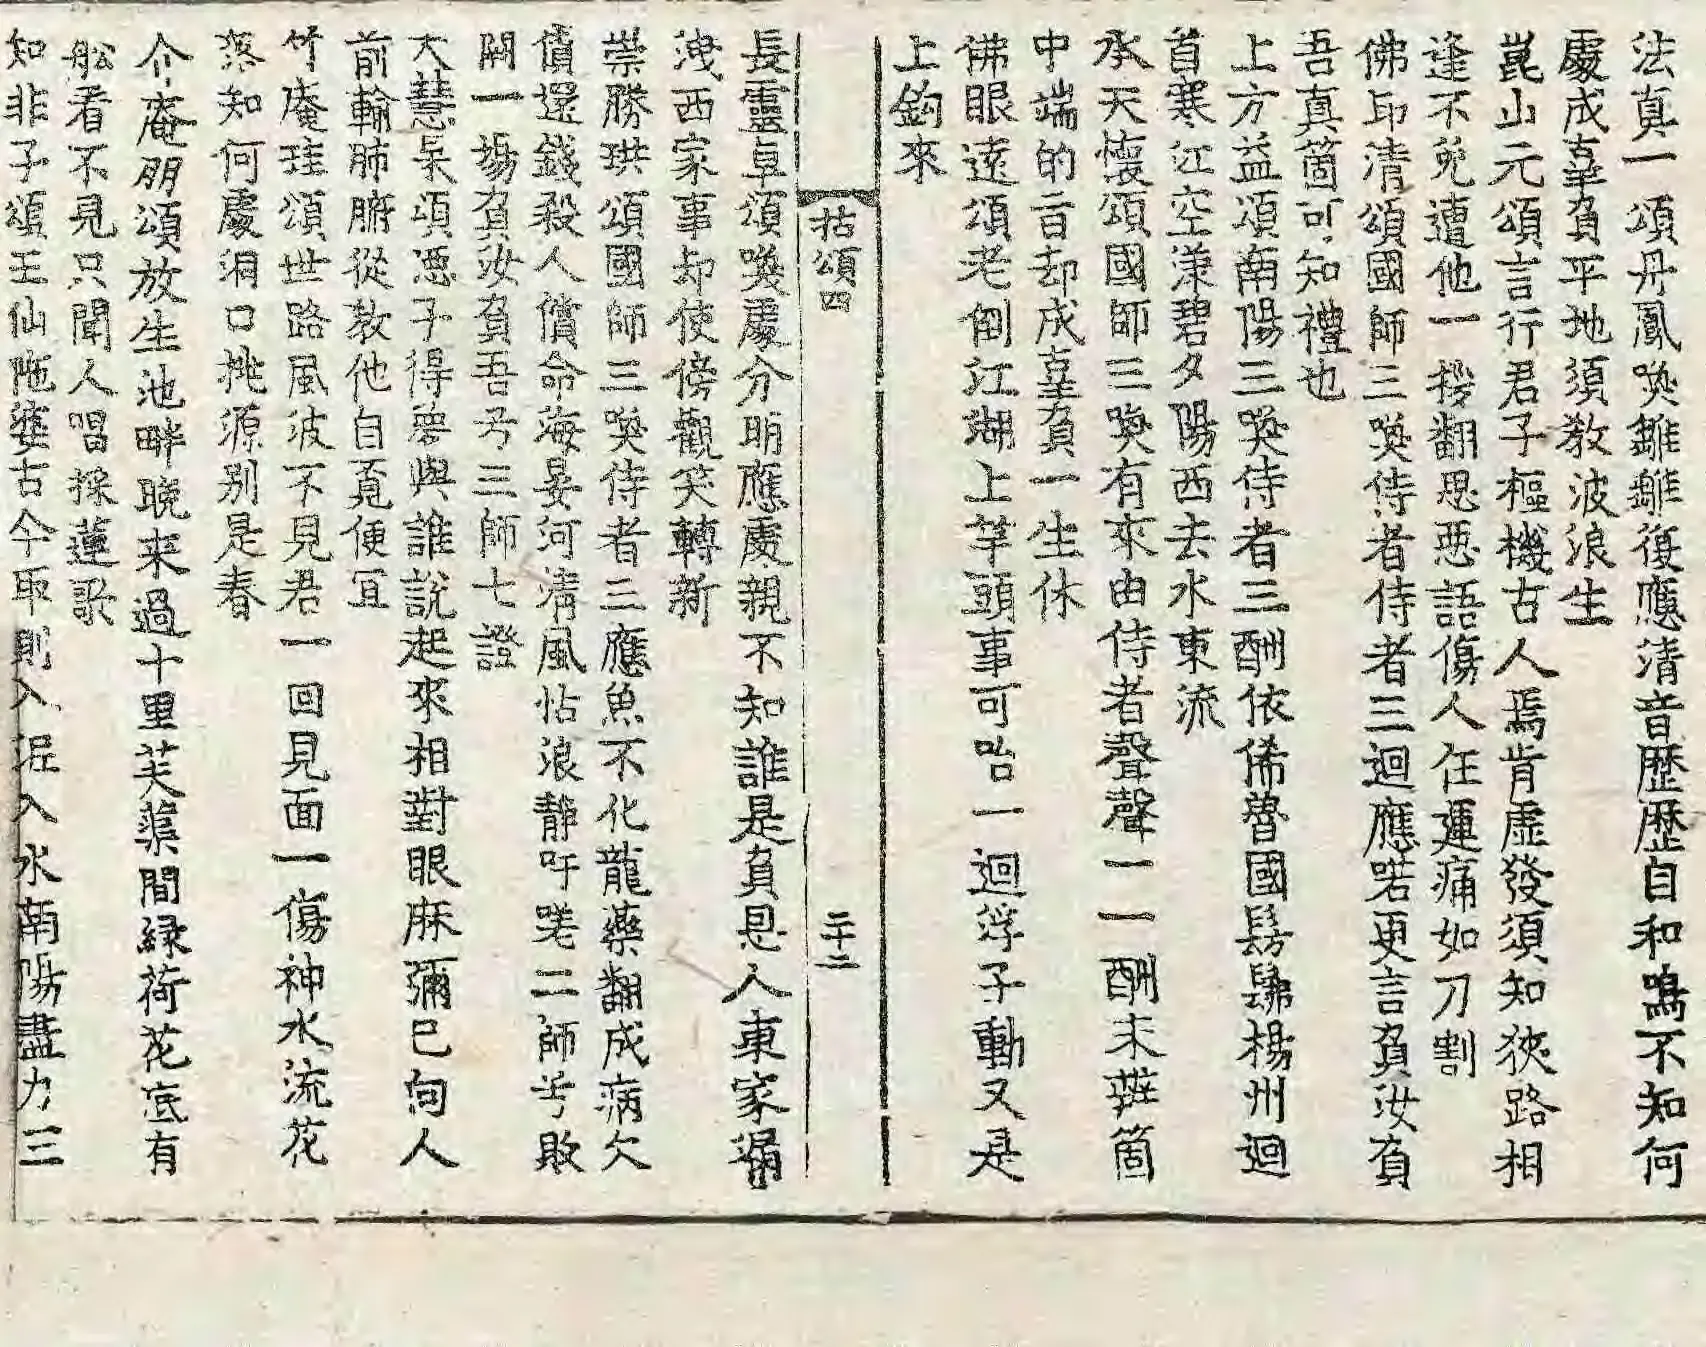 法真一頌丹鳳喚雛雛復應清音歷歷自和鳴不知何
處成辜負平地須教波浪生
崑山元頌言行君子樞機古人焉肯虛發須知狹路相
逢不免遭他一拶翻思惡語傷人任運痛如刀割
佛印清頌國師三喚侍者侍者三迴應喏更言負汝負
吾真箇可知禮也
上方益頌南陽三喚侍者三酬依俙魯國髣髴楊州迴
首寒江空漾碧夕陽西去水東流
承天懷頌國師三喚有來由侍者聲聲一一酬未辨箇
中端的旨却成辜負一生休
佛眼遠頌老倒江湖上竿頭事可咍一迴浮子動又是
上鈎來
拈頌四
二十二
長靈卓頌喚處分明應處親不知誰是負恩人東家漏
洩西家事却使傍觀笑轉新
崇勝珙頌國師三喚侍者三應魚不化龍藥翻成病欠
債還錢殺人償命海晏河清風恬浪靜吁嗟二師兮敗
闕一場負汝負吾兮三師七證
大慧杲頌啞子得夢與誰說起來相對眼麻彌已向人
前輸肺腑從教他自覔便宜
竹庵珪頌世路風波不見君一回見面一傷神水流花
落知何處洞口桃源別是春
介庵朋頌放生池畔晚来過十里芙蕖間緑荷花底有
舩看不見只聞人唱採蓮歌
知非子頌王仙陁婆古今取則入泥入水南陽盡力三